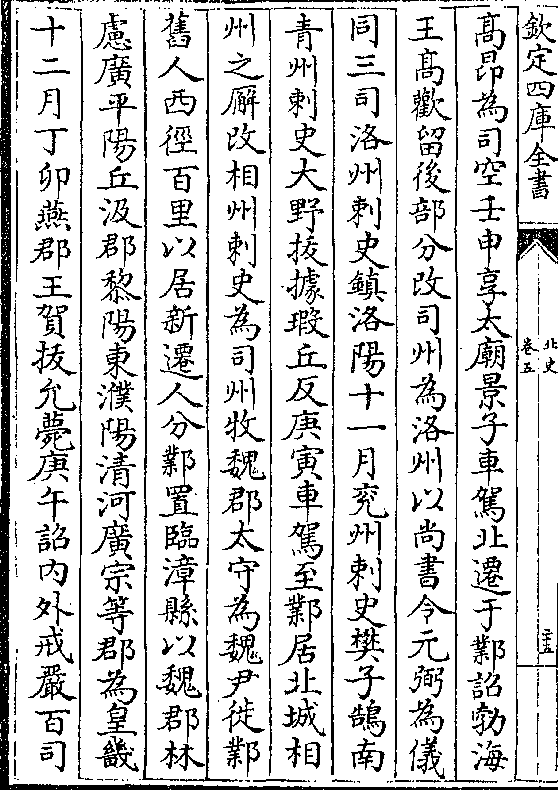 欽定四庫全書
北史
卷五
三五
髙昂為司空壬申享太廟景子車駕北遷于鄴詔勃海
王髙歡留後部分改司州為洛州以尚書令元弼為儀
同三司洛州刺史鎮洛陽十一月兖州刺史樊子鵠南
青州刺史大野㧞據瑕丘反庚寅車駕至鄴居北城相
州之廨改相州刺史為司州牧魏郡太守為魏尹徙鄴
舊人西徑百里以居新遷人分鄴置臨漳縣以魏郡林
慮廣平陽丘汲郡黎陽東濮陽清河廣宗等郡為皇畿
十二月丁卯燕郡王賀㧞允薨庚午詔内外戒嚴百司